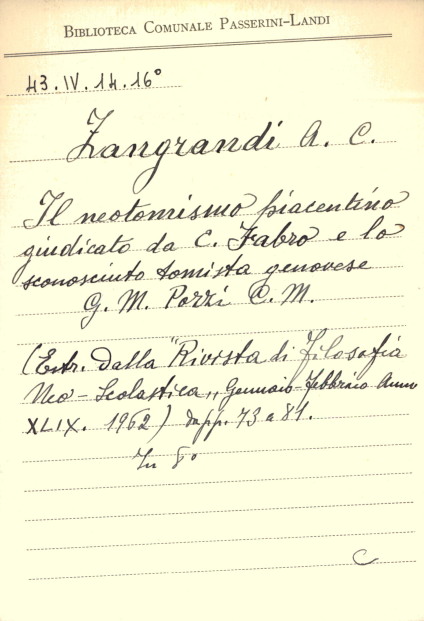 BIBLIOTECA COMUNALE PASSERINI-LANDI
43.IV.14.16°
Zangrandi A. C.
Il neotomismo piacentino
giudicato da C. Fabro e lo
sconosciuto tomista genovese
G. M. Pozzi C. M.
(Estr. dalla "Rivista di Filosofia
Neo-Scolastica„ Gennaio-Febbraio Anno
XLIX. 1962) da pp. 73 a 81.
In 8°
C